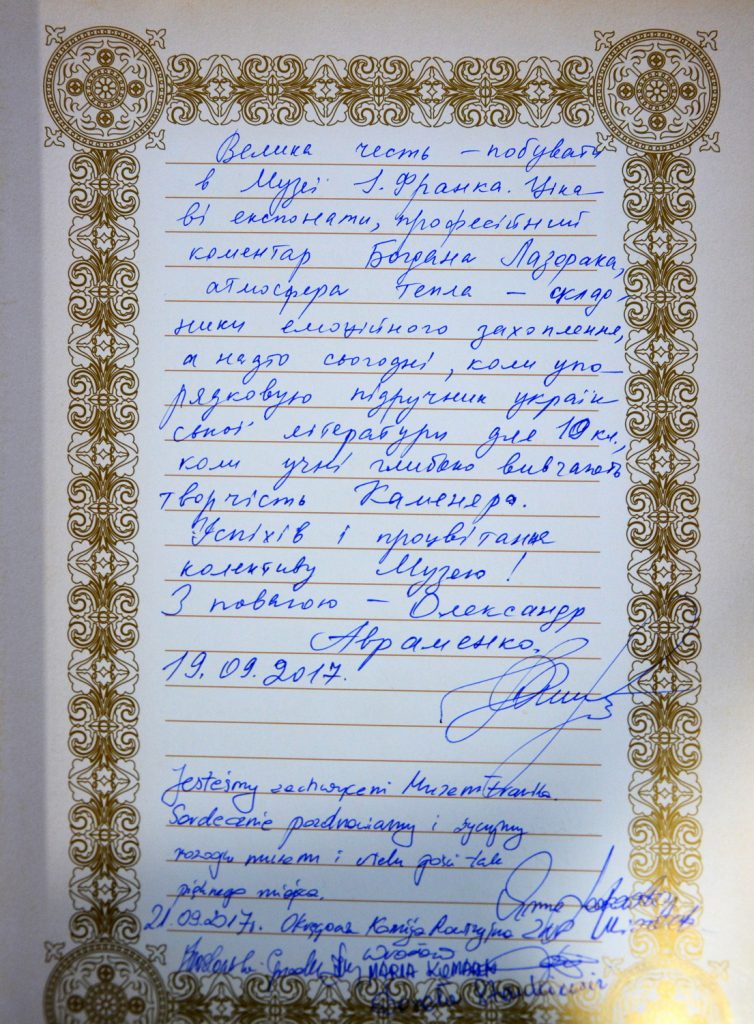 Велика честь – побувати
в Музеї І. Франка. Ціка-
ві експонати, професійний
коментар Богдана Лазорака,
атмосфера тепла – складо-
ники емоційного захоплення,
а надто сьогодні, коли упо-
рядковую підручник україн
ської літератури для 10 кл.,
коли учні глибоко вивчають
творчість Каменяра.
Успіхів і процвітання
колективу Музею!
З повагою – Олександр
Авраменко.
19.09.2017.
Jesteśmy zachwyceni Muzeum Franka.
Serdecznie pozdrawiamy i życzymy
rozwoju muzeum i wielu gości tak
pięknego miejsca.
21.09.2017r. Okręgowa Komisja Rewizyjna ZNP
Wrocław
MARIA